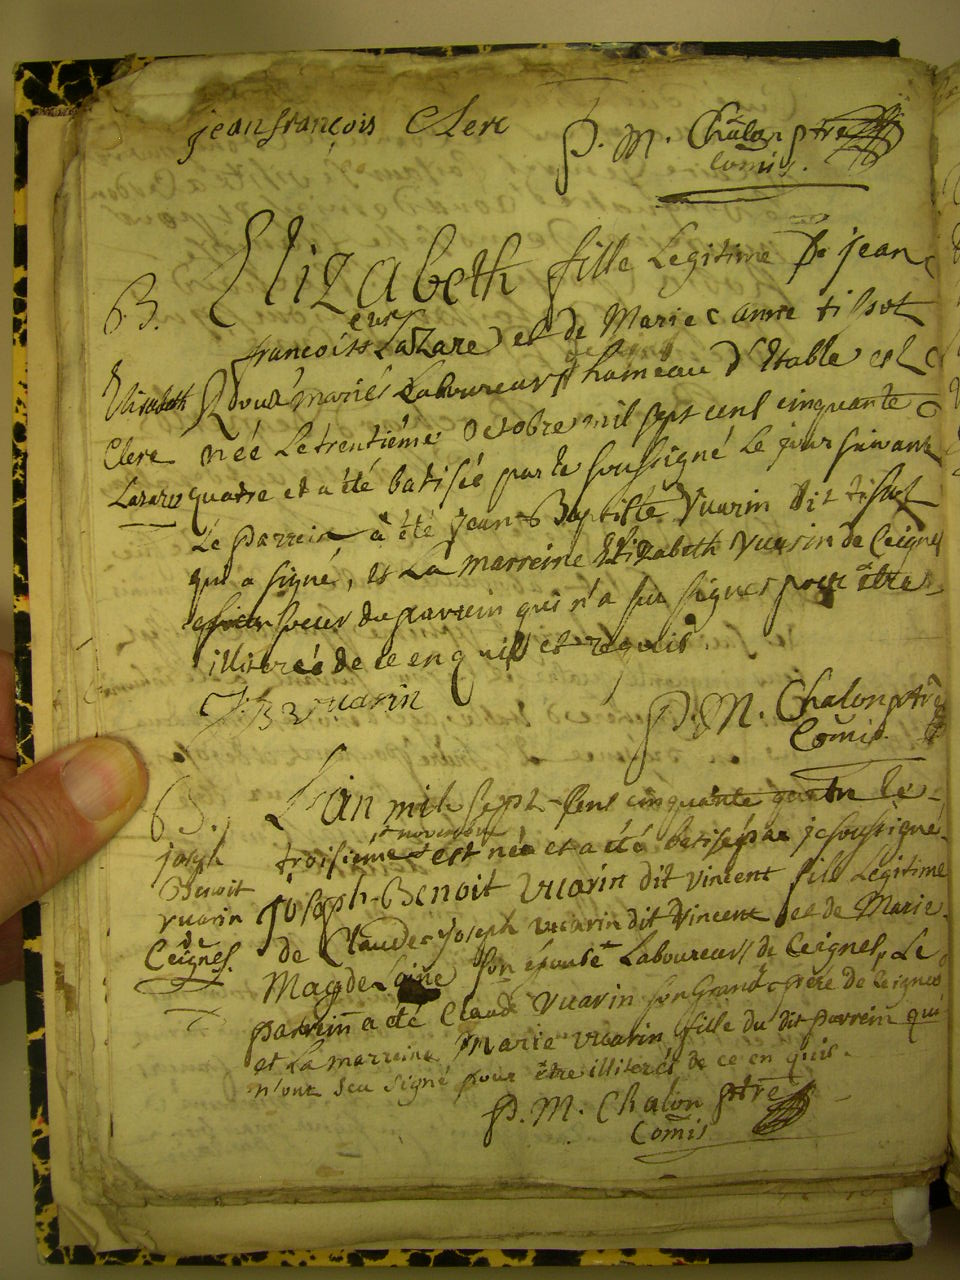 jean françois Clerc
P. M. Chalon ptre
Comis.
B.
Elizabeth
Clerc
Lazare
Elizabeth fille Legitime De jean
francois Lazare et de Marie anne tissot
mariés Laboureurs hameau d'Etable est
née Le trentiéme octobre mil sept cent cinquante
quatre et a été batisée par le soussigné Le jour suivant
Le parrein a été Jean-Baptiste Vuarin dit tissot
qui a signé, et La marreine Elizabeth Vuarin de Ceignes
soeur du parrein qui n'a su signer pour être
illiterée de ce enquise et requise.
J. B vuarin
P. M. Chalon ptre
Comis.
B.
joseph
Benoit
vuarin
de
Ceignes.
L'an mil sept-Cent cinquante quatre le
novembre
troisiéme est né et a été batisé par je soussigné
Joseph-Benoit vuarin dit vincent fils Légitime
de Claude-Joseph vuarin dit Vincent et de Marie
Magdelaine son épouse Laboureurs de Ceignes, Le
parrein a été Claude vuarin son Grand-pére de Ceignes
et La marreine Marie vuarin fille du dit parrein qui
n'ont sçu signé pour être illiterés de ce en quis.
P. M. Chalon ptre
Comis